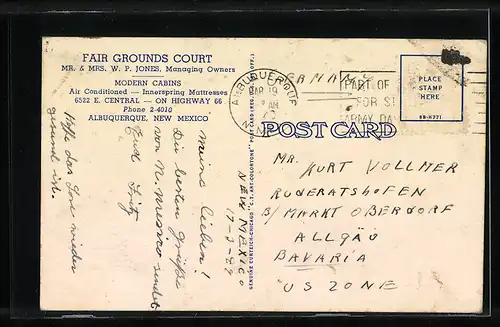 FAIR GROUNDS COURT
MR. & MRS. W. P. JONES, Managing Owners
MODERN CABINS
Air Conditioned — Innerspring Mattresses
6522 E. CENTRAL — ON HIGHWAY 66
Phone 2-4010
ALBUQUERQUE, NEW MEXICO
NEW MEXICO
17-3-49
Meine lieben!
Die besten Grüße
von N. Mexico sendet
Euch Fritz
Hoffe das Lore wieder
gesund ist.
GERMANY
ALBUQUERQUE
MAR 19
AM
PART OF
FOR
ARMY DAY
PLACE
STAMP
HERE
8B-H771
POST CARD
MR. KURT VOLLMER
RUDERATSHOFEN
B/ MARKT OBERDORF
ALLGÄU
BAVARIA
US ZONE